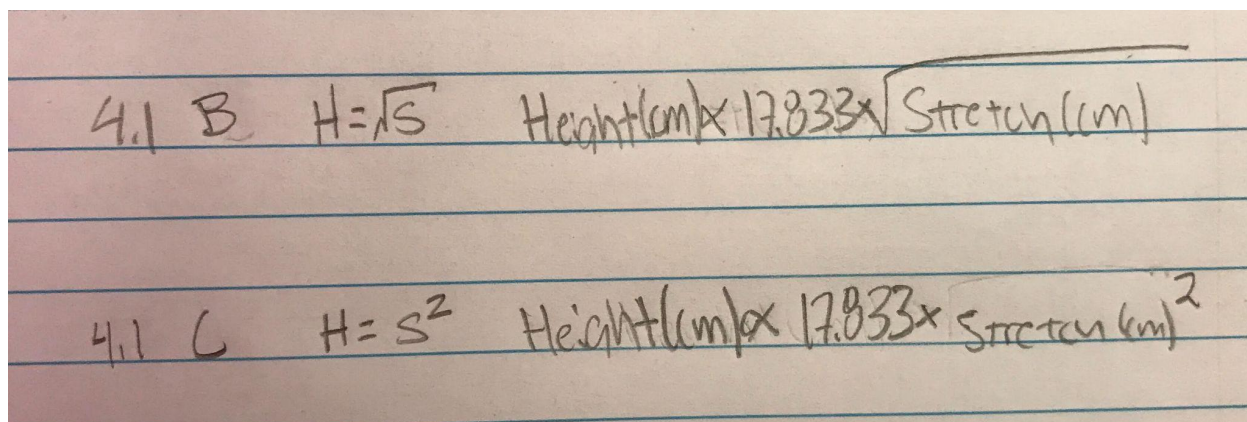 4.1 B H=√S Height(cm)∝ 17.833×√Stretch(cm)
4.1 C H=S² Height(cm)∝ 17.833× Stretch(cm)²